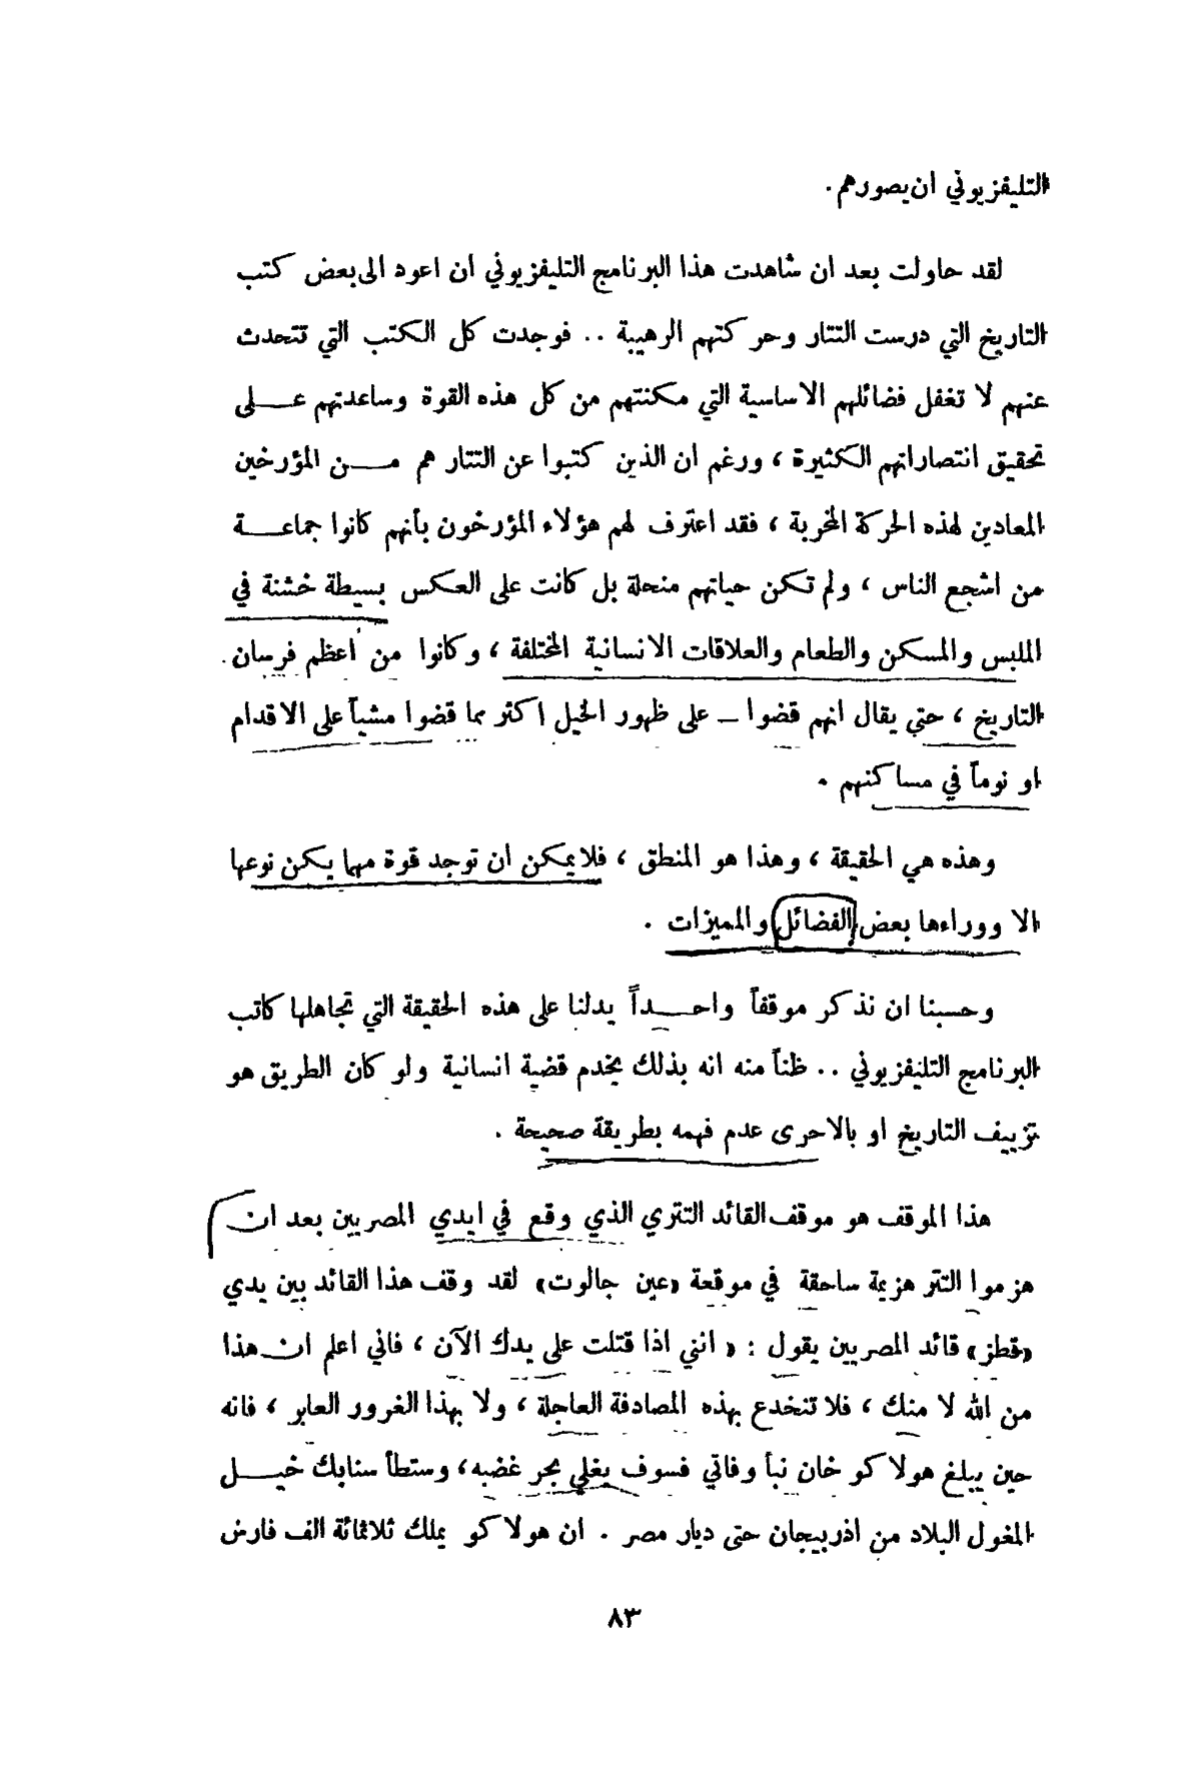 التليفزيوني ان يصورهم .
لقد حاولت بعد ان شاهدت هذا البرنامج التليفزيوني ان اعود الى بعض كتب
التاريخ التي درست التتار وحركتهم الرهيبة .. فوجدت كل الكتب التي تتحدث
عنهم لا تغفل فضائلهم الاساسية التي مكنتهم من كل هذه القوة وساعدتهم عـلى
تحقيق انتصاراتهم الكثيرة ، ورغم ان الذين كتبوا عن التتار هم مـن المؤرخين
المعادين لهذه الحركة المخربة ، فقد اعترف لهم هؤلاء المؤرخون بأنهم كانوا جماعـة
من اشجع الناس ، ولم تكن حياتهم منحلة بل كانت على العكس بسيطة خشنة في
الملبس والمسكن والطعام والعلاقات الانسانية المختلفة ، وكانوا من أعظم فرسان
التاريخ ، حتى يقال انهم قضوا _ على ظهور الخيل اكثر مما قضوا مشياً على الاقدام
او نوماً في مساكنهم .
وهذه هي الحقيقة ، وهذا هو المنطق ، فلا يمكن ان توجد قوة مهما يكن نوعها
الا ووراءها بعض الفضائل والمميزات .
وحسبنا ان نذكر موقفاً واحـداً يدلنا على هذه الحقيقة التي تجاهلها كاتب
البرنامج التليفزيوني .. ظناً منه انه بذلك يخدم قضية انسانية ولو كان الطريق هو
تزييف التاريخ او بالاحرى عدم فهمه بطريقة صحيحة .
هذا الموقف هو موقف القائد التتري الذي وقع في ايدي المصريين بعد ان
هزموا التتر هزيمة ساحقة في موقعة «عين جالوت» لقد وقف هذا القائد بين يدي
«قطز» قائد المصريين يقول : « انني اذا قتلت على يدك الآن ، فاني اعلم ان هذا
من الله لا منك ، فلا تنخدع بهذه المصادفة العاجلة ، ولا بهذا الغرور العابر ، فانه
حين يبلغ هولاكو خان نبأ وفاتي فسوف يغلي بحر غضبه ، وستطأ سنابك خيـل
المغول البلاد من اذربيجان حتى ديار مصر . ان هولاكو يملك ثلاثمائة الف فارس
٨٣